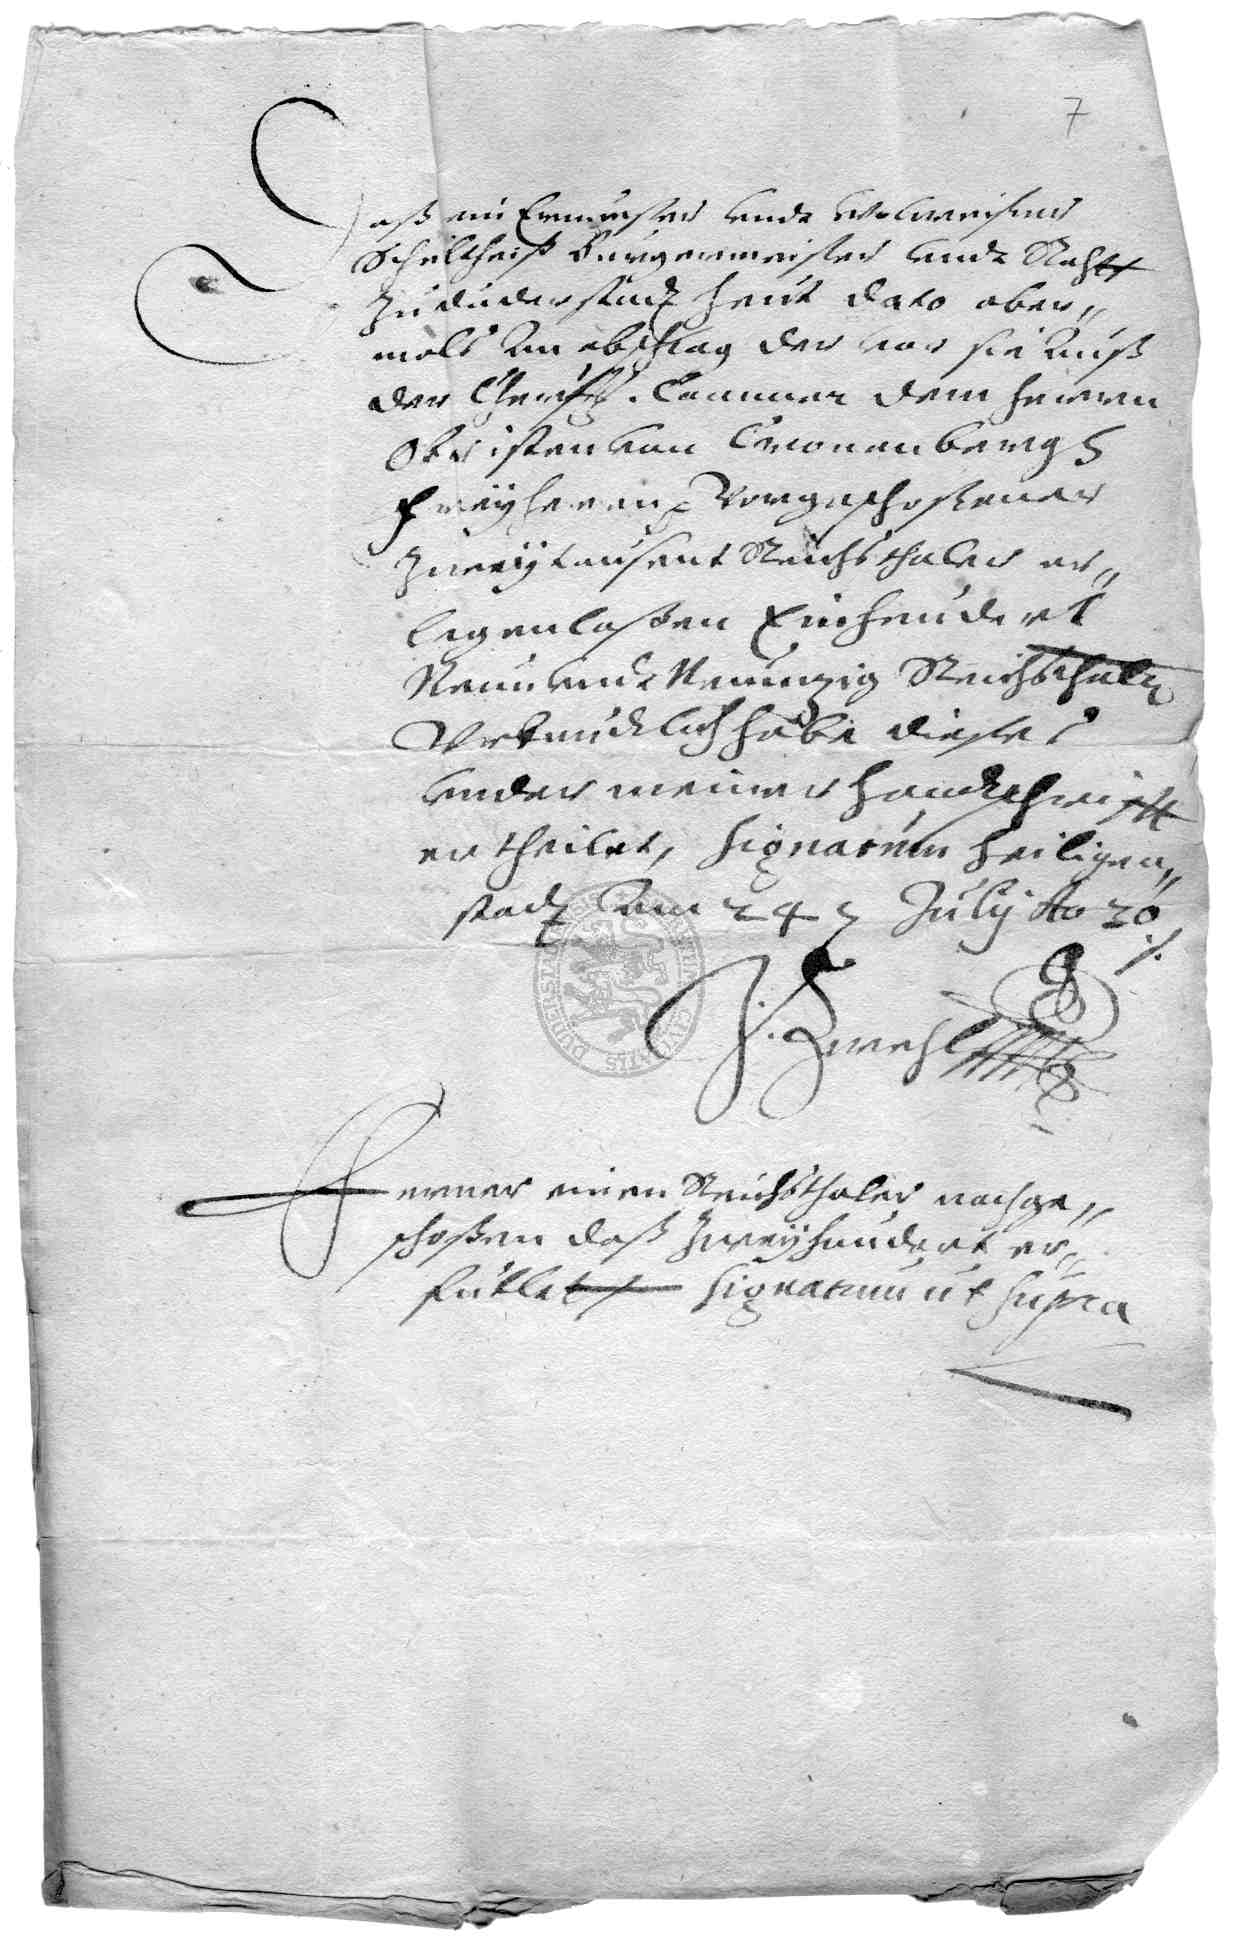 7
Daß ein Ernvester unde Wolweißer
Schultheiß Burgermeister unde Rahtt
Zu duderstadt heut dato aber„
mals un abschlag der vor sie auß
der Churf. Cammer dem herren
Obristen von Cronenbergh
freyherrn Vorgeschoßener
Zweytausent Reichsthaler er„
legen laßen Einhundert
Neun unde Neunzig Reichsthaler
Urkundlich habe dießes
under meiner handtschrifft
ertheilet, signatum heiligen„
stadt am 24 July Ao 26
Zwehl
Ferner einen Reichsthaler nachge„
schoßen daß Zweyhundert er„
füllet signatum ut supra